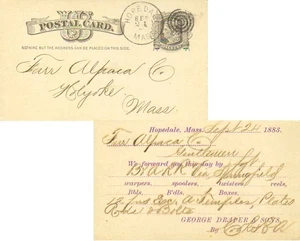 POSTAL CARD.
NOTHING BUT THE ADDRESS CAN BE PLACED ON THIS SIDE.
HOPEDALE
SEP
24
MASS
Farr Alpaca Co
Holyoke
Mass.
Hopedale, Mass. Sept 24 1883.
Farr Alpaca Co
Gentlemen
We forward you this day by
B & A RR via Springfield
warpers, spoolers, twisters, reels,
Bbls. Bdls. Boxes.
Temples, Plates
Rods & Bolts
GEORGE DRAPER & SONS,
By